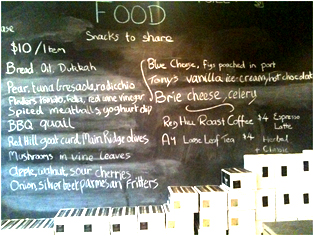 FOOD
Snacks to share
$10/Item
Bread Oil, Dukkah
Pear, tuna bresaola, radicchio
Flinders tomato, feta, red wine vinegar
Spiced meatballs, yoghurt dip
BBQ quail
Red Hill goat curd, Main Ridge olives
Mushrooms in vine leaves
Apple, walnut, sour cherries
Onion silverbeet parmesan fritters
Blue Cheese, figs poached in port
Tony's vanilla ice-cream, hot chocolate
Brie cheese, celery
Red Hill Roast Coffee $4 Espresso
Latte
Loose Leaf Tea $4 Herbal
+ Classic